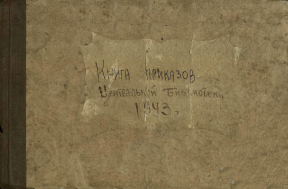 Книга приказов
Центральной Библиотеки
1943 г.